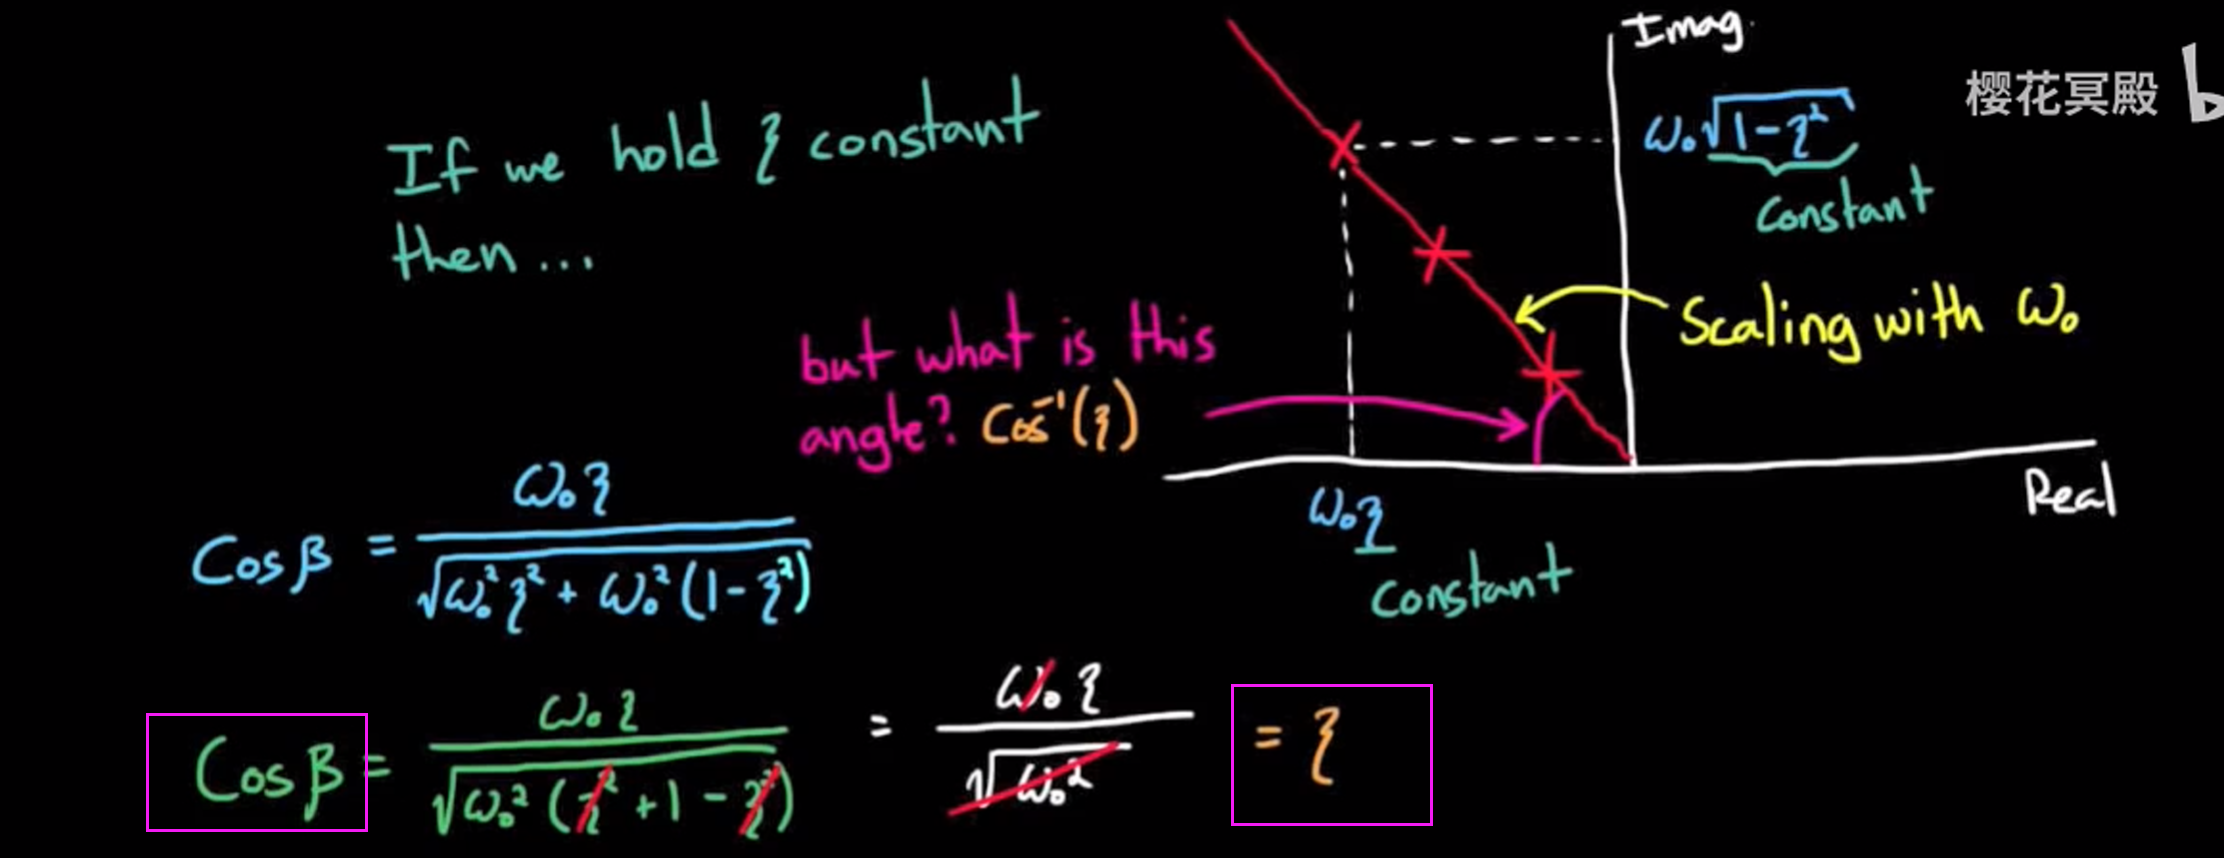 Imag.
樱花冥殿 b
If we hold ζ constant
then...
ω₀√1-ζ²
constant
Scaling with ω₀
but what is this
angle? Cos⁻¹(ζ)
Real
ω₀ζ
constant
Cosβ = ω₀ζ / √ω₀²ζ² + ω₀²(1-ζ²)
Cosβ = ω₀ζ / √ω₀²(ζ²+1-ζ²) = ω₀ζ / √ω₀² = ζ